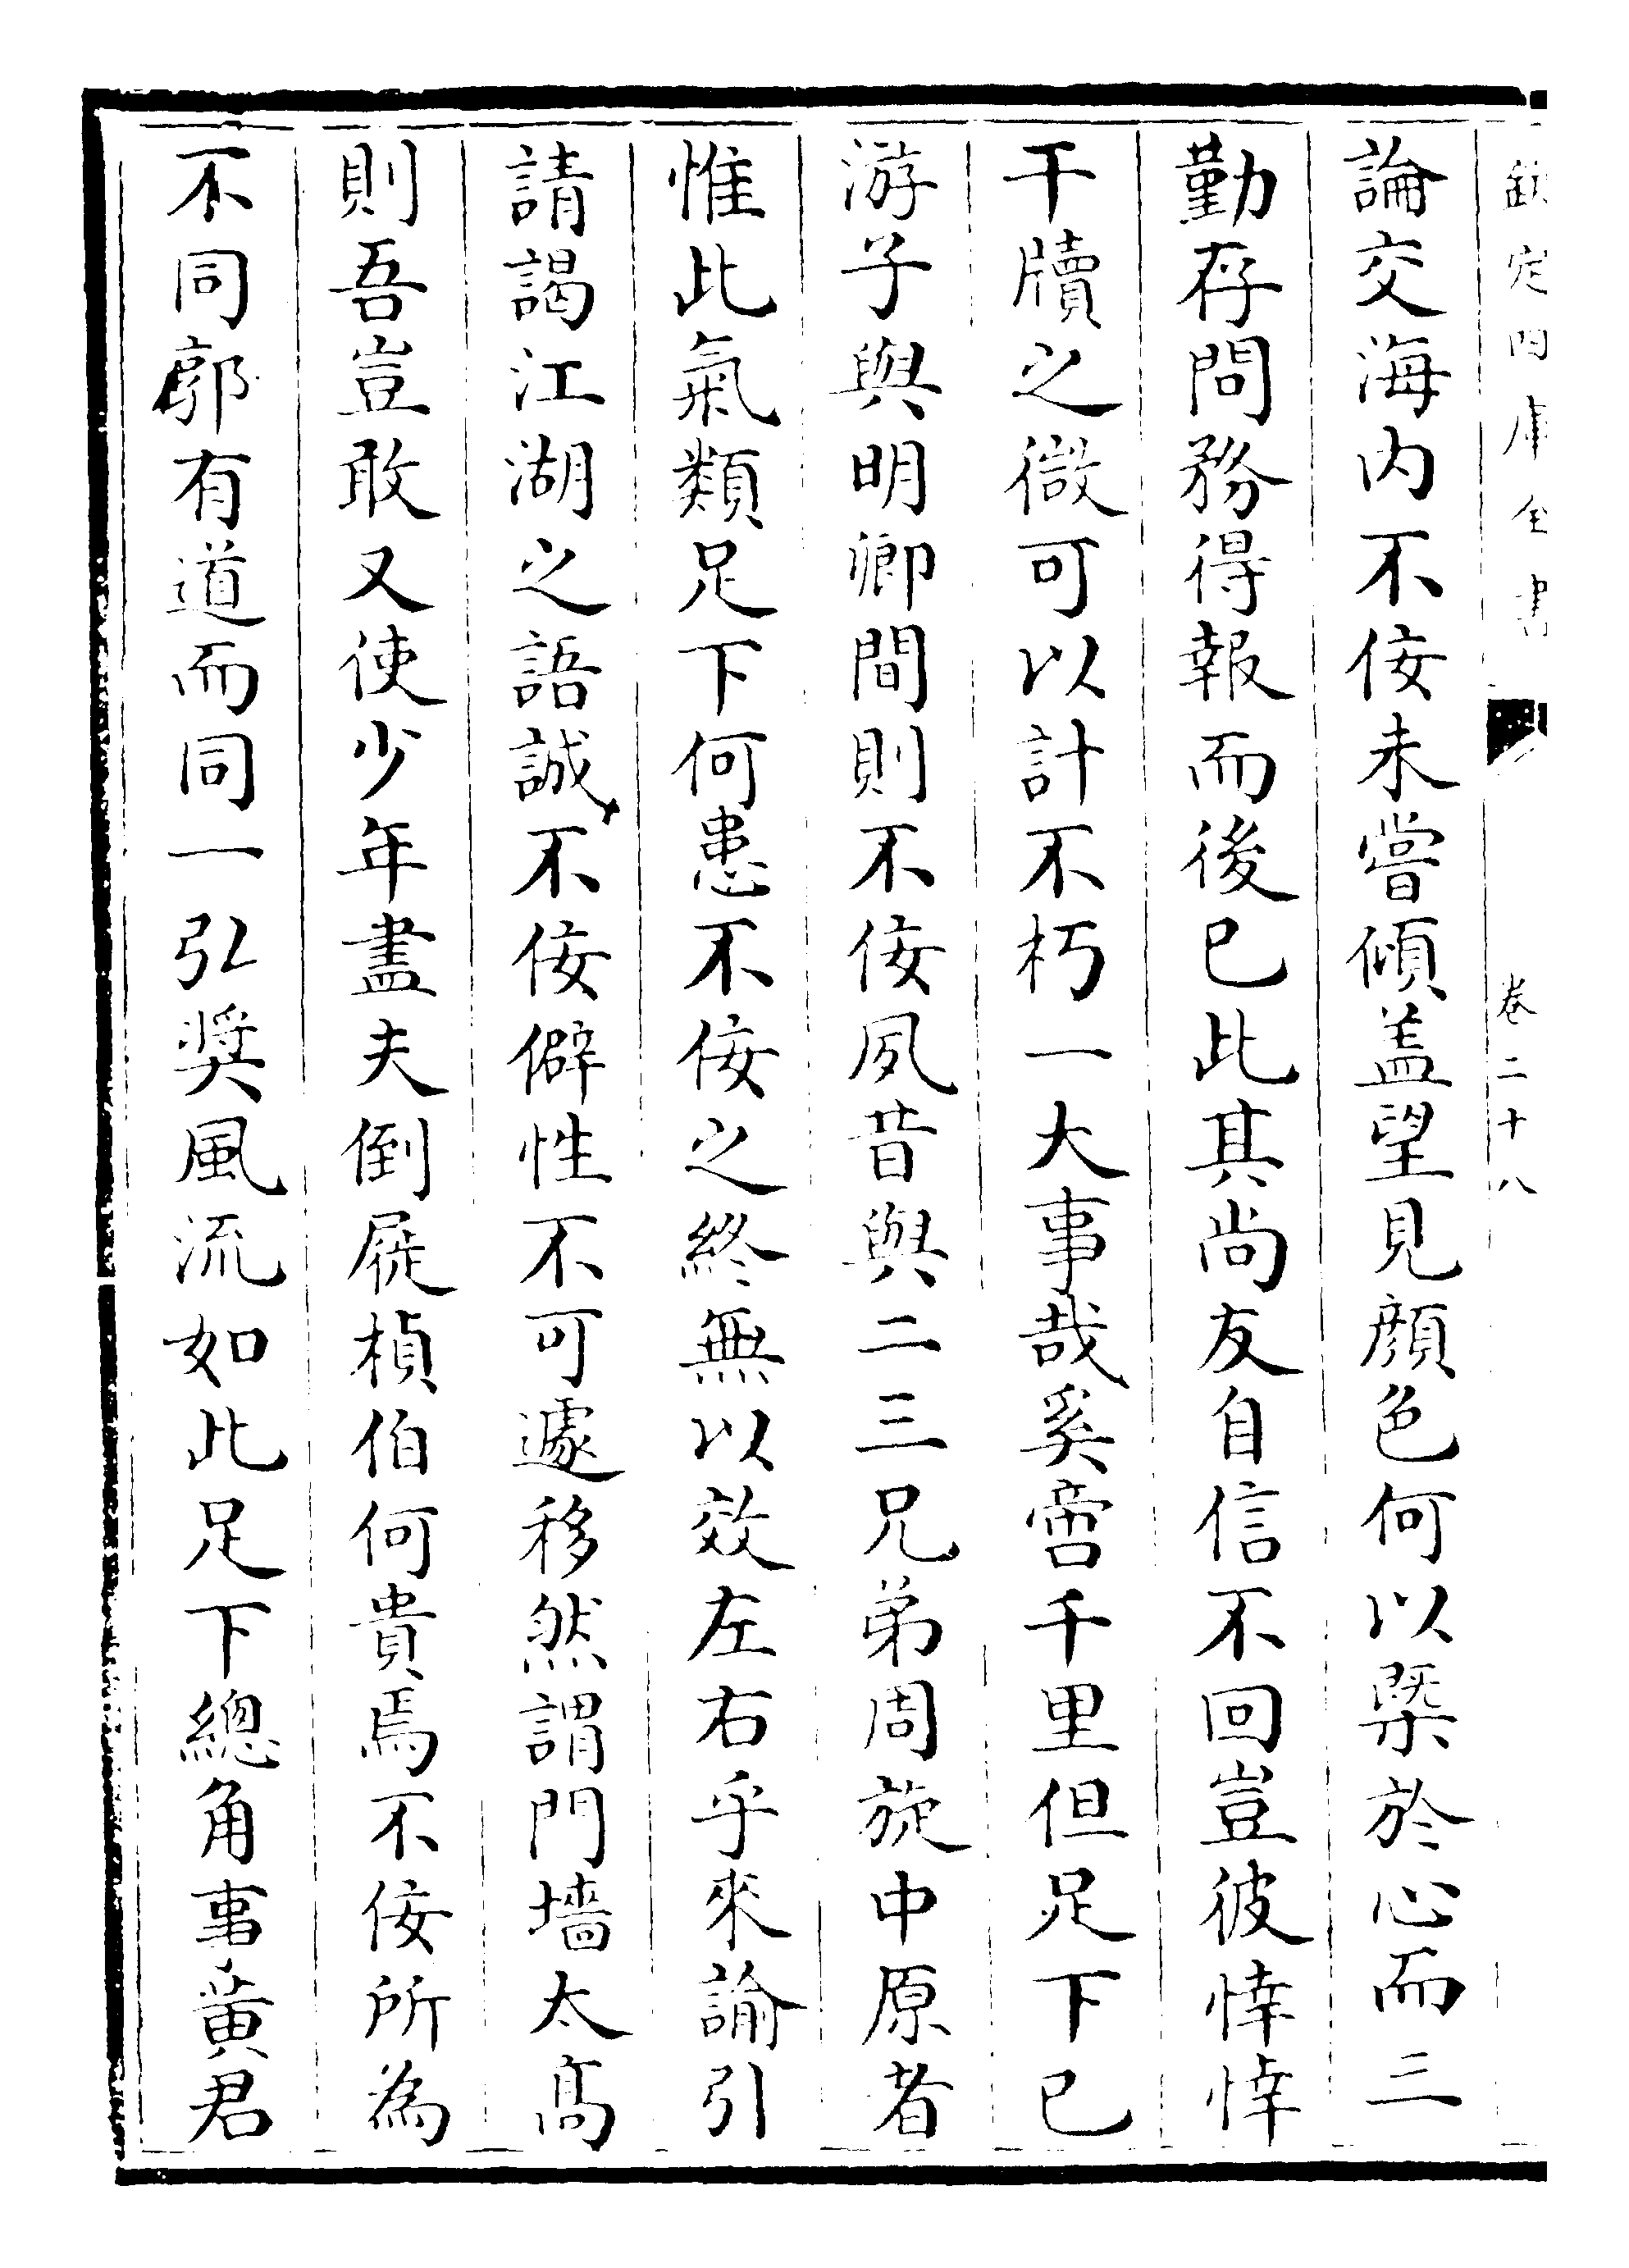 欽定四庫全書
卷二十八
論交海内不佞未嘗傾盖望見顔色何以槩於心而三
勤存問務得報而後已此其尚友自信不回豈彼悻悻
干牘之微可以計不朽一大事哉奚啻千里但足下已
游子與明卿間則不佞夙昔與二三兄弟周旋中原者
惟此氣類足下何患不佞之終無以效左右乎來諭引
請謁江湖之語誠不佞僻性不可遽移然謂門墻太髙
則吾豈敢又使少年盡夫倒屣楨伯何貴焉不佞所為
不同郭有道而同一弘奬風流如此足下總角事黄君